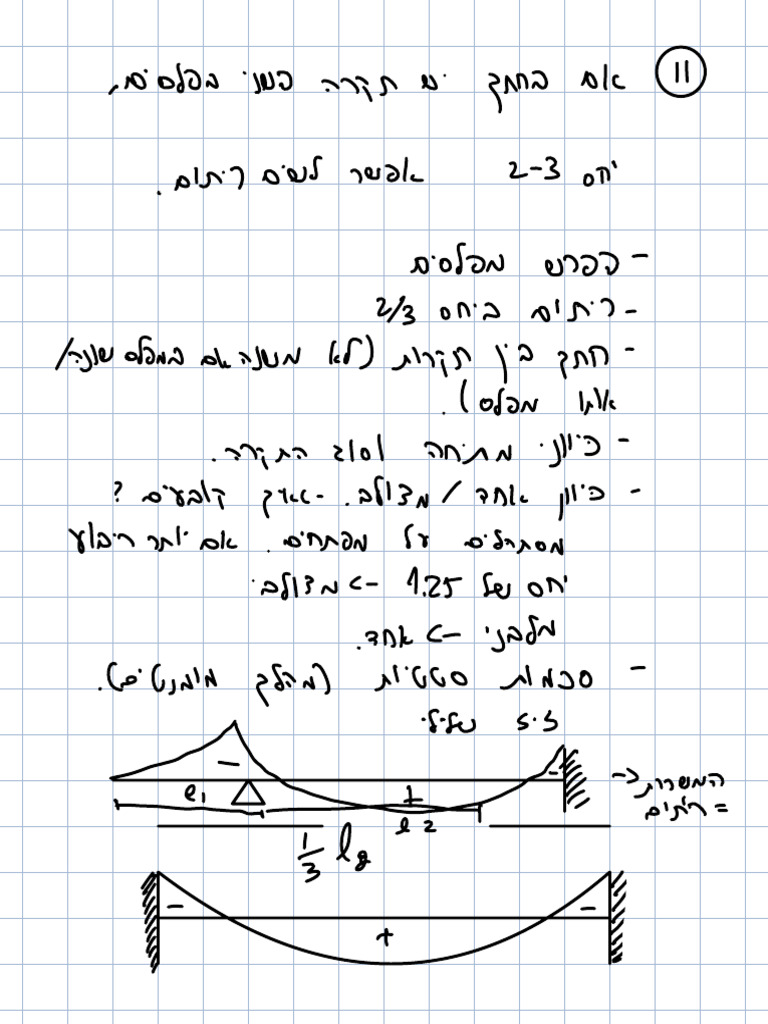 ⑪ אם בחתך יש תקרה בשני מפלסים,
יחס 2-3 אפשר לשים ריתום.
- הפרש מפלסים
- ריתום ביחס 2/3
- חתך בין תקרות (לא משנה אם במפלס שונה/
אותו מפלס).
- כיווני מתיחה וסוג התקרה.
- כיוון אחד/מצולב. - איך קובעים?
מסתכלים על מפתחים. אם יותר ריבוע
יחס של 1.25 -> מצולב.
מלבני -> אחד.
- סכמות סטטיות (מהלך מומנטים).
שלילי
- -
l1 + l2
המשכיות <-
= ריתום
1/3 l2
- + -